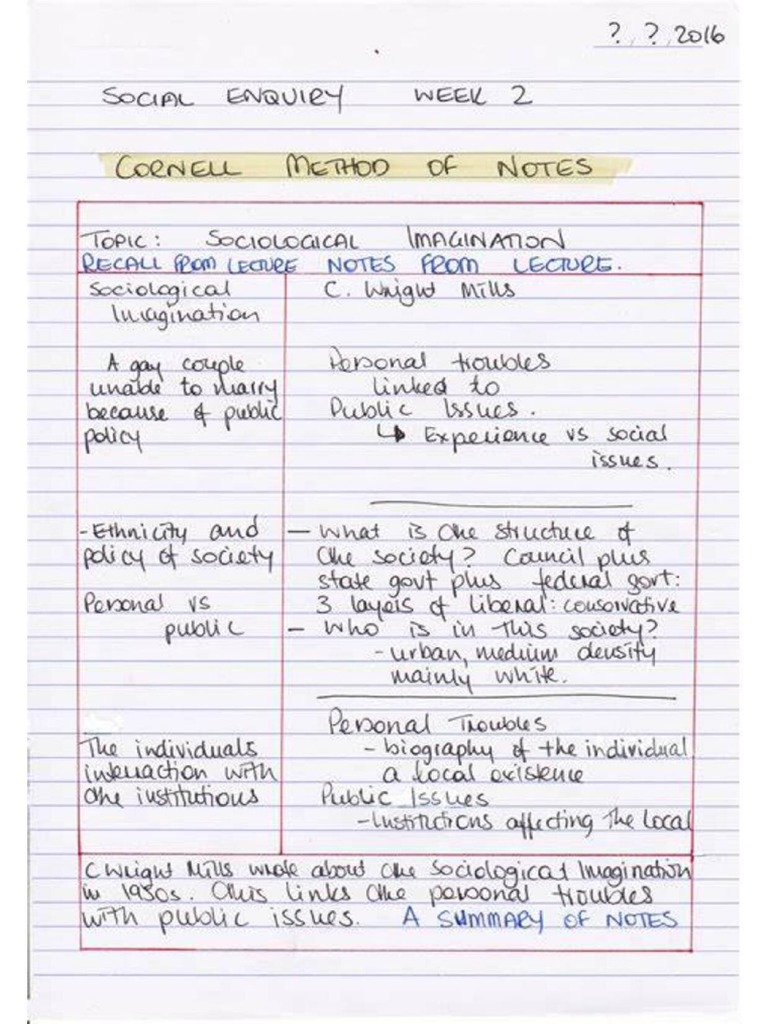 ?, ?, 2016
SOCIAL ENQUIRY WEEK 2
CORNELL METHOD OF NOTES
TOPIC: SOCIOLOGICAL IMAGINATION
RECALL FROM LECTURE NOTES FROM LECTURE.
Sociological
Imagination
C. Wright Mills
A gay couple
unable to marry
because of public
policy
Personal troubles
linked to
Public Issues.
↳ Experience vs social
issues.
- Ethnicity and
policy of society
Personal vs
public
– What is the structure of
the society? Council plus
state govt plus federal govt:
3 layers of liberal: conservative
– Who is in this society?
- urban, medium density
mainly white.
The individuals
interaction with
the institutions
Personal Troubles
– biography of the individual
a local existence
Public Issues
– Institutions affecting the local
C Wright Mills wrote about the Sociological Imagination
in 1950s. This links the personal troubles
with public issues. A SUMMARY OF NOTES